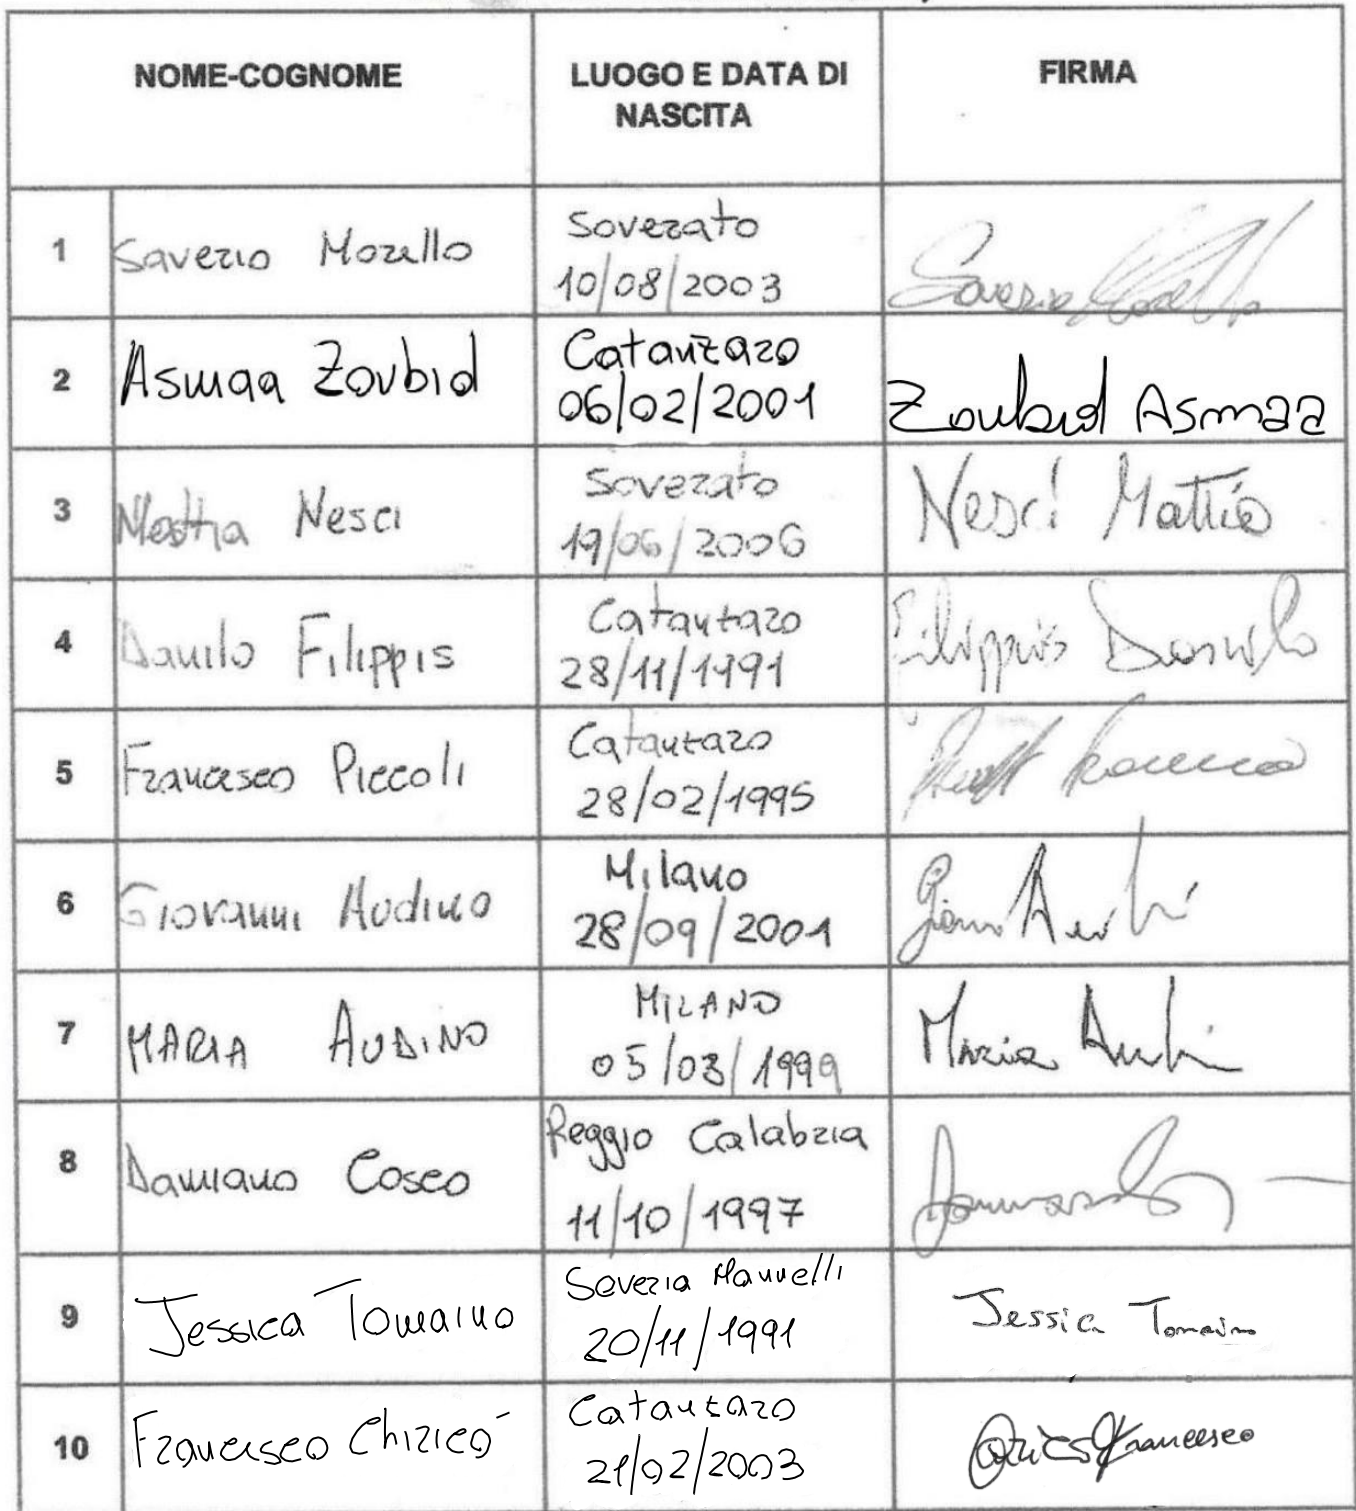 NOME-COGNOME
LUOGO E DATA DI
NASCITA
FIRMA
1
Saverio Morello
Soverato
10/08/2003
Saverio Morello
2
Asmaa Zoubid
Catanzaro
06/02/2001
Zoubid Asmaa
3
Mattia Nesci
Soverato
19/06/2006
Nesci Mattia
4
Danilo Filippis
Catanzaro
28/11/1991
Filippis Danilo
5
Francesco Piccoli
Catanzaro
28/02/1995
6
Giovanni Audino
Milano
28/09/2001
7
MARIA AUDINO
MILANO
05/03/1999
Maria Audino
8
Damiano Cosco
Reggio Calabria
11/10/1997
9
Jessica Tomaino
Soveria Mannelli
20/11/1991
Jessica Tomaino
10
Francesco Chiricó
Catanzaro
21/02/2003
Francesco